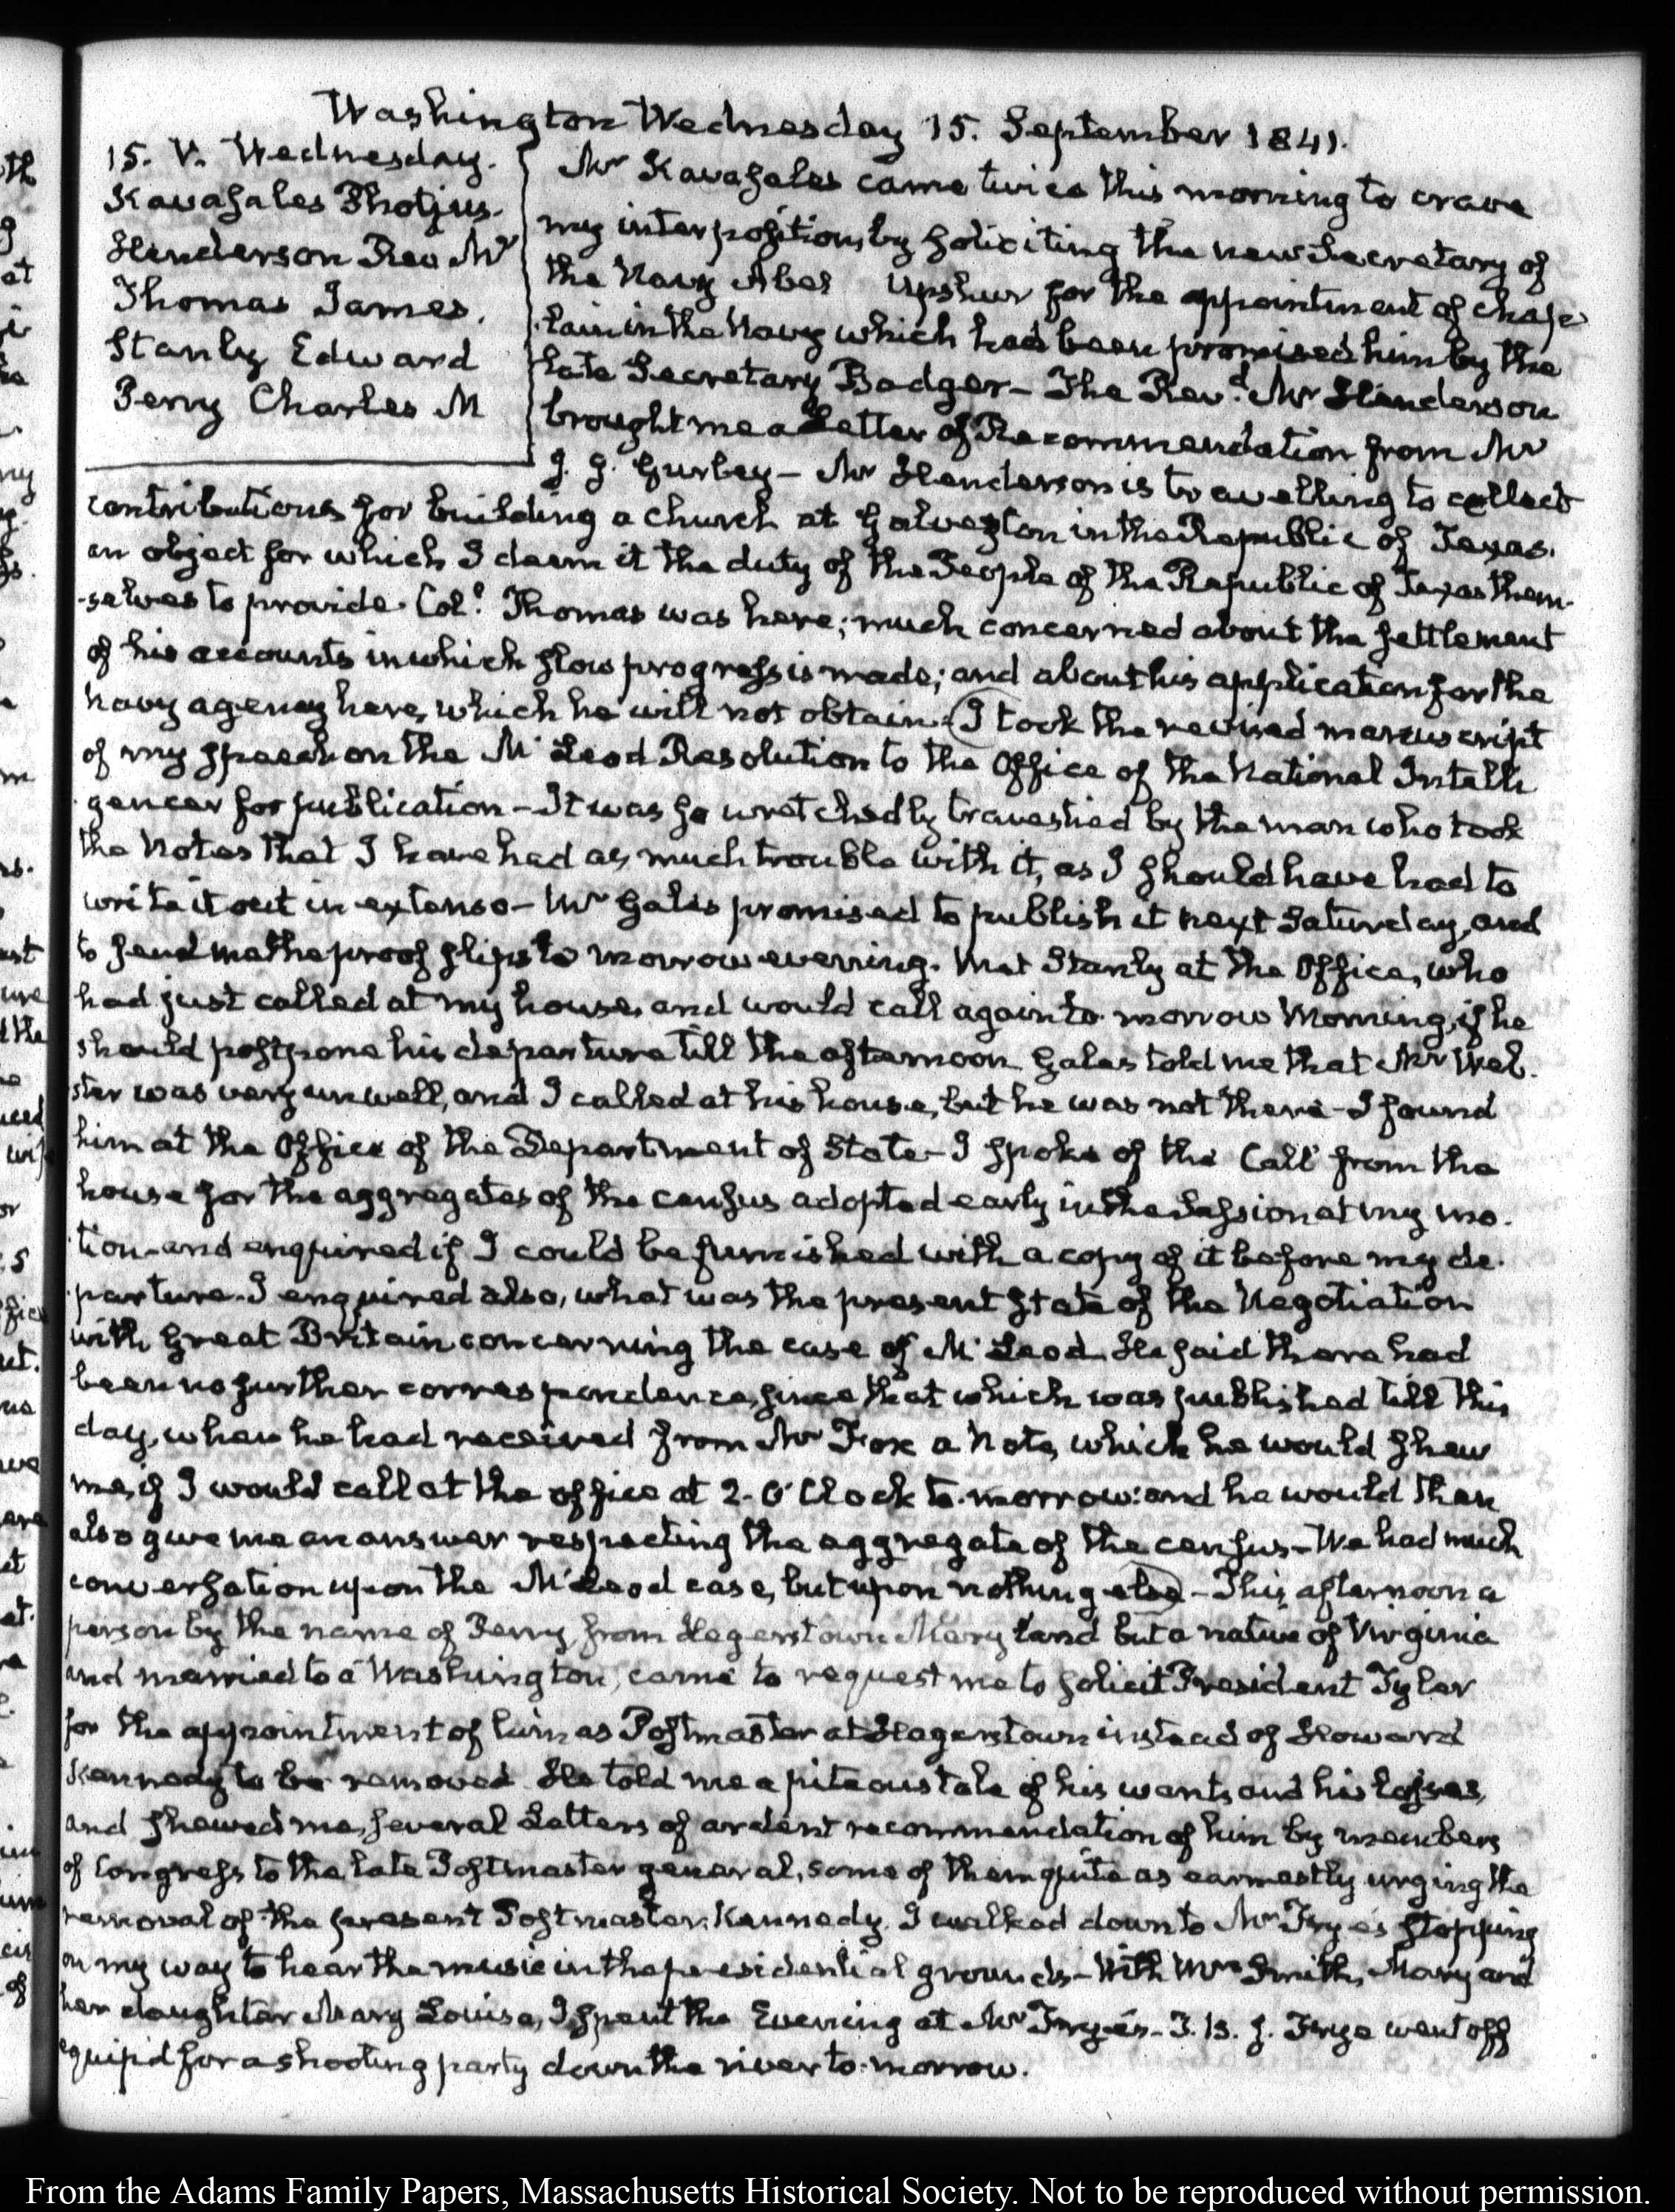 Washington Wednesday 15. September 1841.
15. V. Wednesday.
Kavasales Photius.
Henderson Rev Mr
Thomas James.
Stanly Edward
Perry Charles M
Mr Kavasales came twice this morning to crave
my interposition, by soliciting the new Secretary of
the Navy Abel Upshur for the appointment of Chap
lain in the Navy which had been promised him by the
late Secretary Badger – The Revd. Mr Henderson
brought me a Letter of Recommendation from Mr
Gurley – Mr Henderson is travelling to collect
contributions for building a church at Galveston in the Republic of Texas.
an object for which I deem it the duty of the People of the Republic of Texas them-
-selves to provide. Coll. Thomas was here; much concerned about the settlement
of his accounts in which slow progress is made; and about his application for the
navy agency here, which he will not obtain. I took the revised manuscript
of my speech on the McLeod Resolution to the Office of the National Intelli
gencer for publication – It was so wretchedly travestied by the man who took
the Notes that I have had as much trouble with it, as I should have had to
write it out in extenso – Mr Gales promised to publish it next Saturday, and
to send me the proof slips to morrow evening. Met Stanly at the Office, who
had just called at my house, and would call again to-morrow Morning, if he
should postpone his departure till the afternoon. Gales told me that Mr Web-
ster was very unwell, and I called at his house, but he was not there – I found
him at the Office of the Department of State – I spoke of the Call from the
house for the aggregates of the census adopted early in the Session at my mo-
tion – and enquired if I could be furnished with a copy of it before my de-
parture. I enquired also, what was the present state of the Negotiation
with Great Britain concerning the case of McLeod. He said there had
been no further correspondence, since that which was published till this
day, when he had received from Mr Fox a Note, which he would shew
me, if I would call at the office at 2. O'Clock to-morrow: and he would then
also give me an answer respecting the aggregate of the census – We had much
conversation upon the McLeod case, but upon nothing else – This afternoon a
person by the name of Perry from Hagerstown Maryland but a native of Virginia
and married to a Washington, came to request me to solicit President Tyler
for the appointment of him as Postmaster at Hagerstown instead of Howard
Kennedy to be removed. He told me a piteous tale of his wants and his losses,
and shewed me, several Letters of ardent recommendation of him by members
of Congress to the late Postmaster general, some of them quite as earnestly urging the
removal of the present Postmaster Kennedy. I walked down to Mr Frye's stopping
on my way to hear the music in the presidential grounds – With Mrs Smith, Mary and
her daughter Mary Louisa, I spent the Evening at Mr Frye's – Frye went off
equip'd for a shooting party down the river to-morrow.
From the Adams Family Papers, Massachusetts Historical Society. Not to be reproduced without permission.